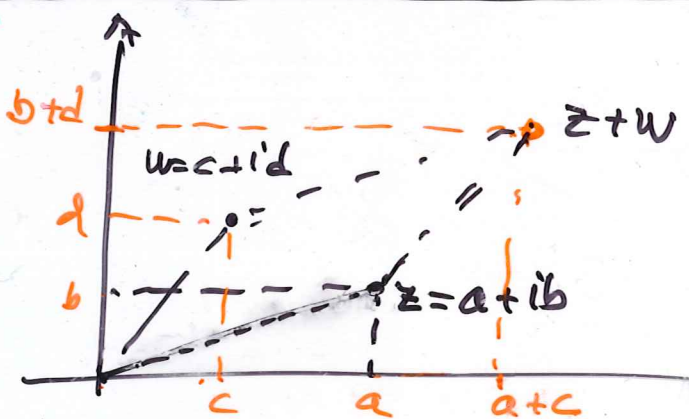 b+d
z+w
w=c+id
d
b
z=a+ib
c
a
a+c